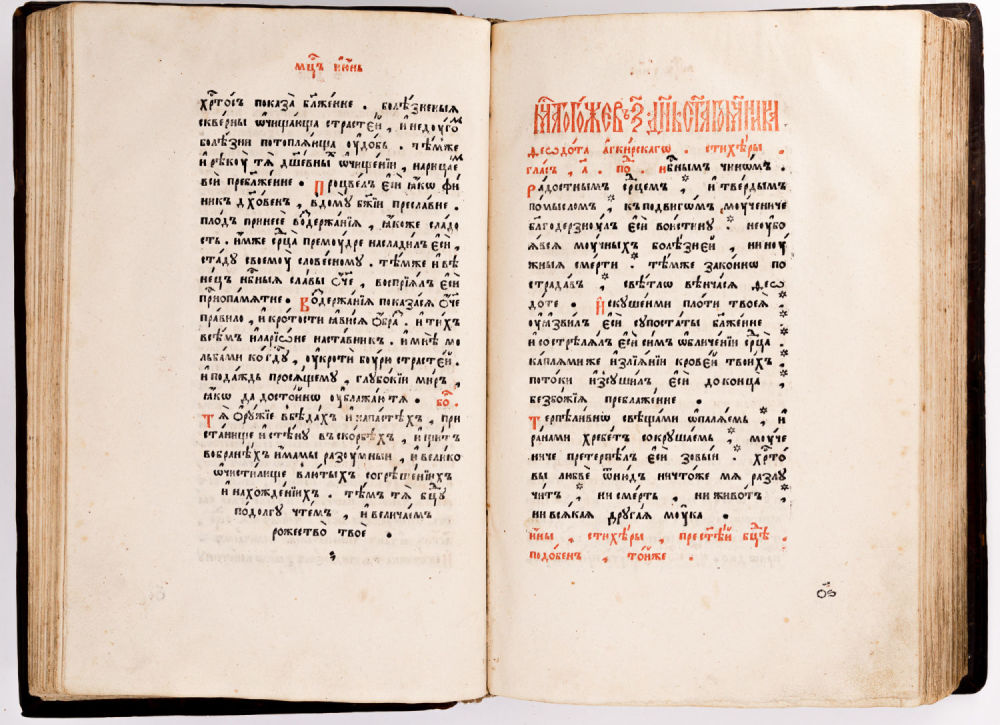 мцⷭ҇ъ і҆ю́нь
хрⷭ҇то́съ показа̀ бл҃же́нне . болѣ́зненыѧ
скверны ѡ҆чища́юща страсте́й , и҆ недоу́гѡⷨ
болѣ́зни потоплѧ́юща оу҆до́бь . тѣ́мже
и҆ рѣкоу́ тѧ дш҃е́вныⷨ ѡ҆чище́нїи , нарица́еⷨ
всѝ пребл҃же́нне . Процвѣ́лъ є҆сѝ ꙗ҆́кѡ фи́
никъ дх҃о́венъ , в дому̀ бж҃їи пресла́вне .
пло́дъ прине́се воⷥдержа́нїѧ , ꙗ҆́коже сла́до
сть . и҆́мже срⷣца прему́дре наслади́лъ є҆сѝ ,
ста́ду своемоу̀ слове́сному . тѣ́мже и҆ вѣ
не́цъ нб҃ныѧ сла́вы ѻ҆́ч҃е , воспрїѧ́лъ є҆сѝ
прⷭ҇нопа́мѧтне . Воⷥдержа́нїѧ показа́сѧ ѻ҆́ч҃е
пра́вило , и҆ кро́тости ꙗ҆ви́сѧ ѻ҆́браⷥ . и҆ ти́хъ
всѣ́мъ и҆ларїѡ́не наста́вникъ . и҆ мнѣ̀ мо
льба́ми ко гдⷭ҇у , оу҆кротѝ боу́ри страсте́й .
и҆ пода́ждь прося́щему , глубо́кїи ми́ръ ,
ꙗ҆́кѡ да досто́йнѡ оу҆блажа́ютъ тѧ . боⷢ .
Тѧ̀ ѻ҆ру́жїе в бѣда́хъ и҆ напа́стѣхъ , при
ста́нище и҆ стѣ́ну въ ско́рбѣхъ , и҆ щи́тъ
во бране́хъ и҆́мамы разоу́мныи , и҆ вели́ко
ѡ҆чисти́лище в лю́тыхъ согрѣше́нїихъ
и҆ нахожде́нїихъ . тѣ́мъ тѧ бцⷣу
по до́лгу чте́мъ , и҆ велича́емъ
рожество̀ твоѐ .
Мцⷭ҇а того́же въ з҃ . дн҃ь ст҃а́го мч҃ника
феѡдо́та а҆нкѵ́рскагѡ . стихѣ́ры .
гла́съ , а҃ . поⷣ . нбⷭ҇нымъ чино́мъ .
Ра́достнымъ срⷣцемъ , и҆ тве́рдымъ
по́мысломъ , къ по́двигѡмъ моу́чениче
благодерзноу́лъ є҆сѝ вои́стину . не оу҆бо
ѧ́всѧ моу́чныхъ болѣ́зней , ни ноу́
жныѧ сме́рти . тѣ́мже зако́ннѡ по
страда́въ , свѣ́тлѡ вѣнча́сѧ феѡ
до́те . И҆скуше́ньми пло́ти твоеѧ̀
оу҆ѧзви́лъ є҆сѝ супоста́ты бл҃же́нне
и҆ состре́лѧлъ є҆сѝ си́мъ ѡ҆бличе́нїи срⷣца .
ка́плями же и҆злїѧ́нїи крове́й твои́хъ ,
пото́ки и҆зсуши́лъ є҆сѝ до конца̀ ,
безбо́жїѧ преблаже́нне .
Терпѣли́внѡ свѣща́ми ѡ҆палѧ́емь , и҆
ра́нами хребе́тъ сокруша́емь , моу́че
ниче претерпѣ́лъ є҆сѝ зовы́и . хрⷭ҇то́
вы любвѐ ѿню́дъ ничто́же мѧ разлу
чи́тъ , ни сме́рть , ни живо́тъ ,
ни всѧ́кая друга́ѧ моу́ка .
и҆́ны , стихѣ́ры , прест҃ѣ́й бцⷣѣ .
подо́бенъ , то́йже .
ѻ҃ѕ